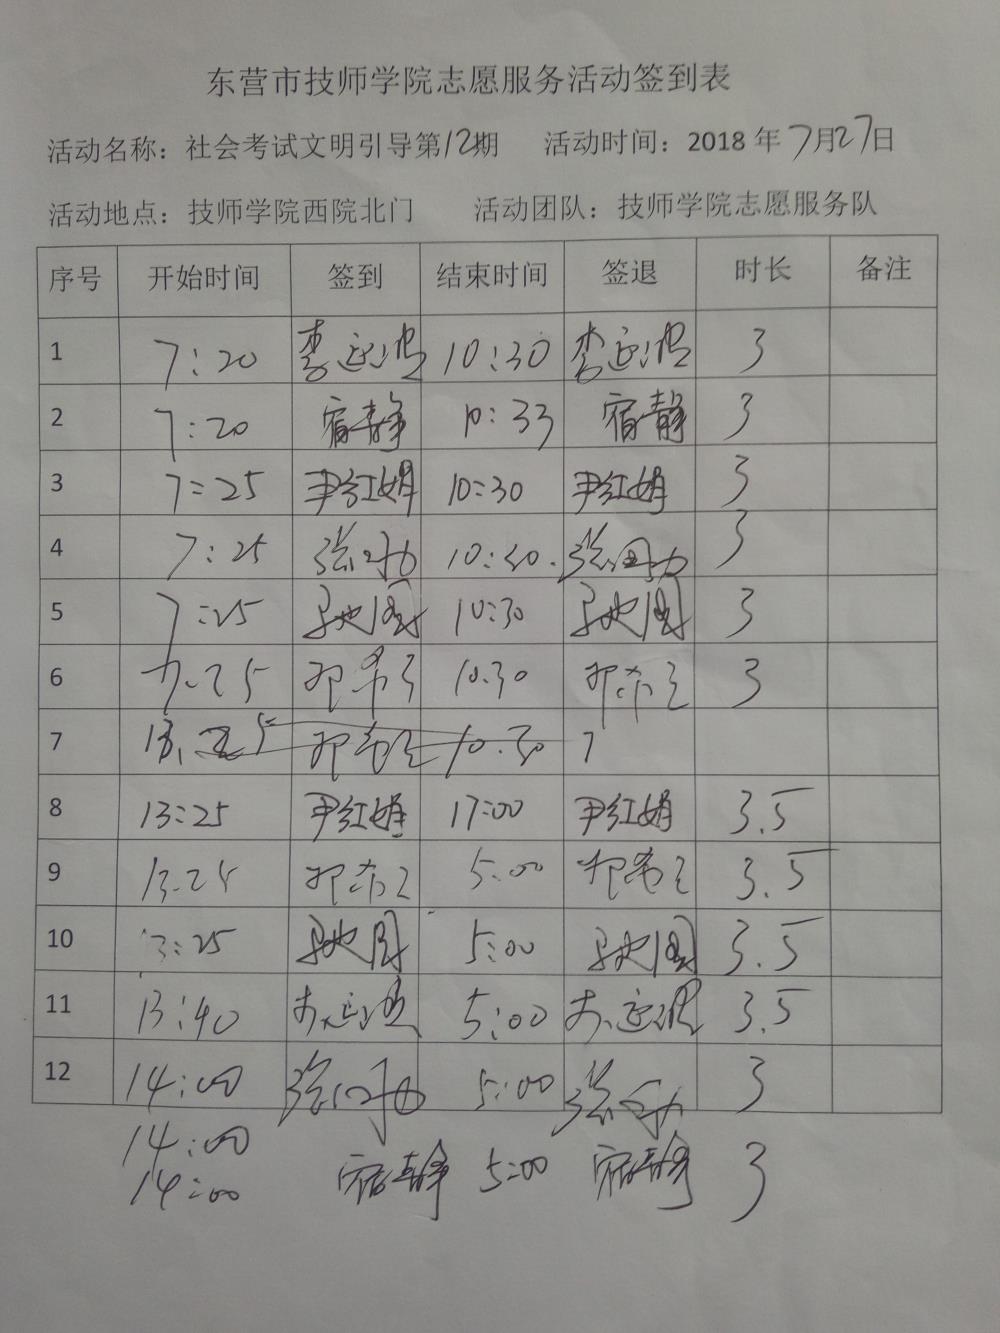 东营市技师学院志愿服务活动签到表
活动名称：社会考试文明引导第12期 活动时间：2018年7月27日
活动地点：技师学院西院北门 活动团队：技师学院志愿服务队
序号 开始时间 签到 结束时间 签退 时长 备注
1 7:20 10:30 3
2 7:20 宿静 10:33 宿静 3
3 7:25 尹红娟 10:30 尹红娟 3
4 7:25 10:30. 3
5 7:25 10:30 3
6 7.25 10.30 3
7 10.30
8 13:25 尹红娟 17:00 尹红娟 3.5
9 13.25 5:00 3.5
10 13:25 5:00 3.5
11 13:40 5:00 3.5
12 14:00 5:00 3
14:00
14:00 宿静 5:00 宿静 3